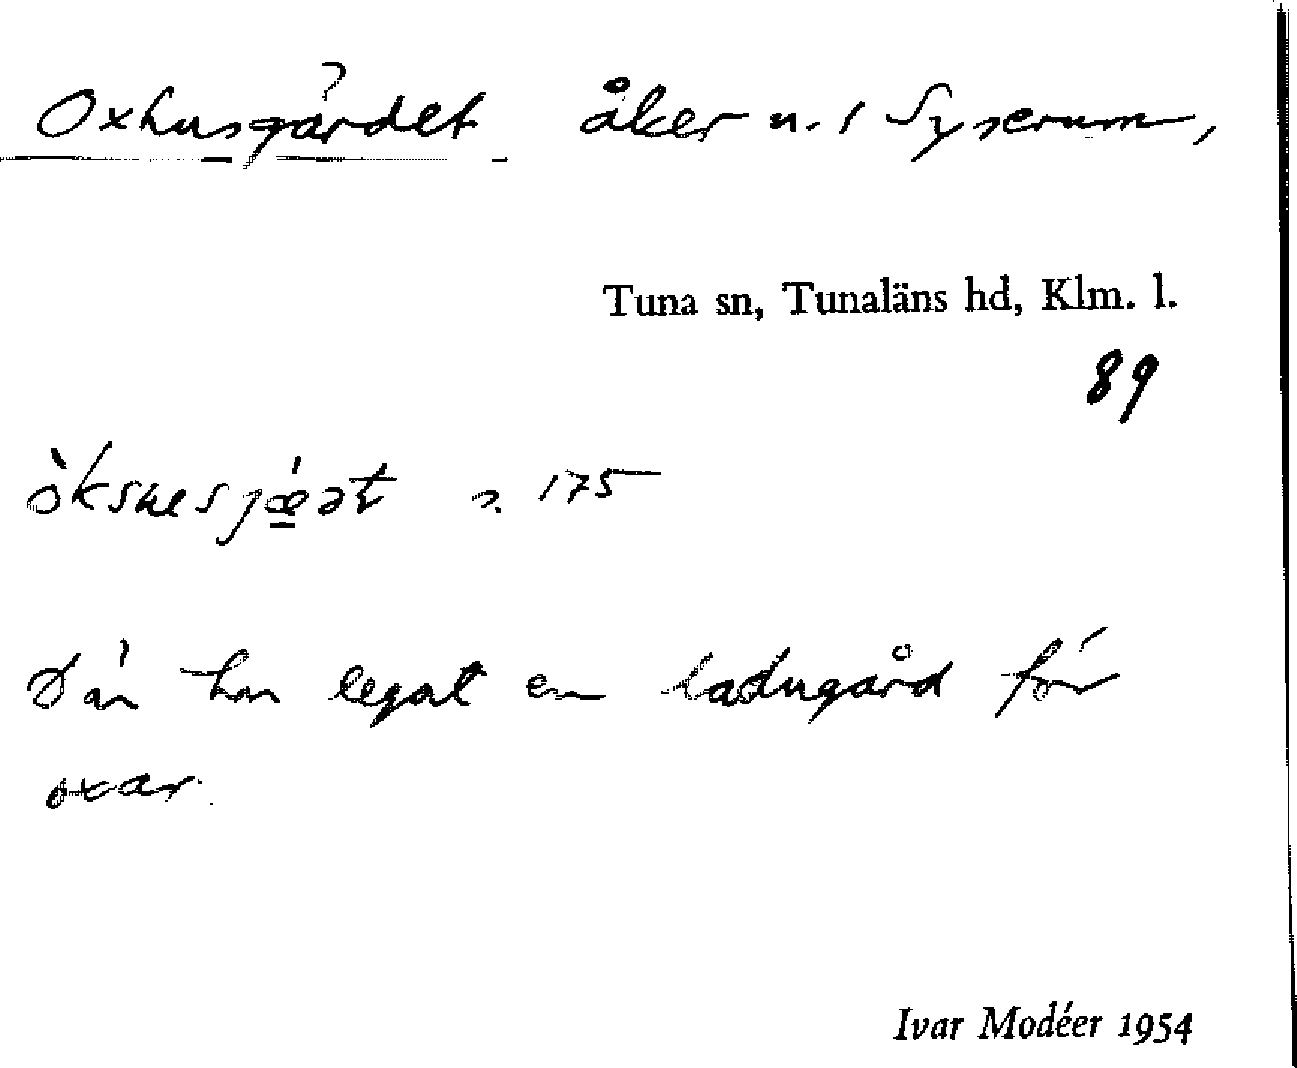 Oxhusgärdet åker n. 1 Syserum,
Tuna sn, Tunaläns hd, Klm. l.
89
òksɯesjǽət s. 175
Där har legat en ladugård för
oxar.
Ivar Modéer 1954